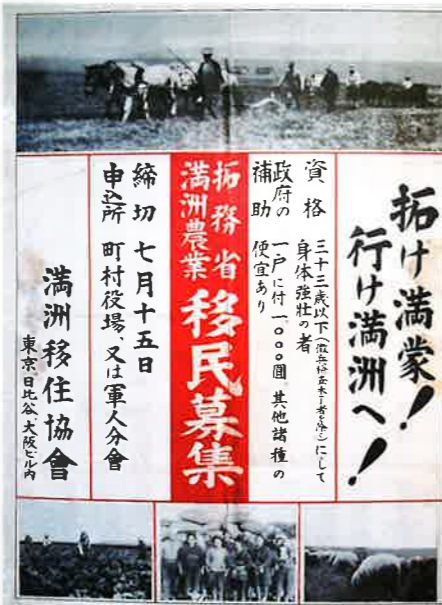 拓け満蒙！
行け満洲へ！
資格 三十三歳以下（　　　　）にして
身体強壮の者
政府の補助 一戸に付一、〇〇〇圓其他諸種の
便宜あり
拓務省
満洲農業
移民募集
締切 七月十五日
申込所 町村役場、又は軍人分會
満洲移住協會
東京、日比谷、大阪ビル内